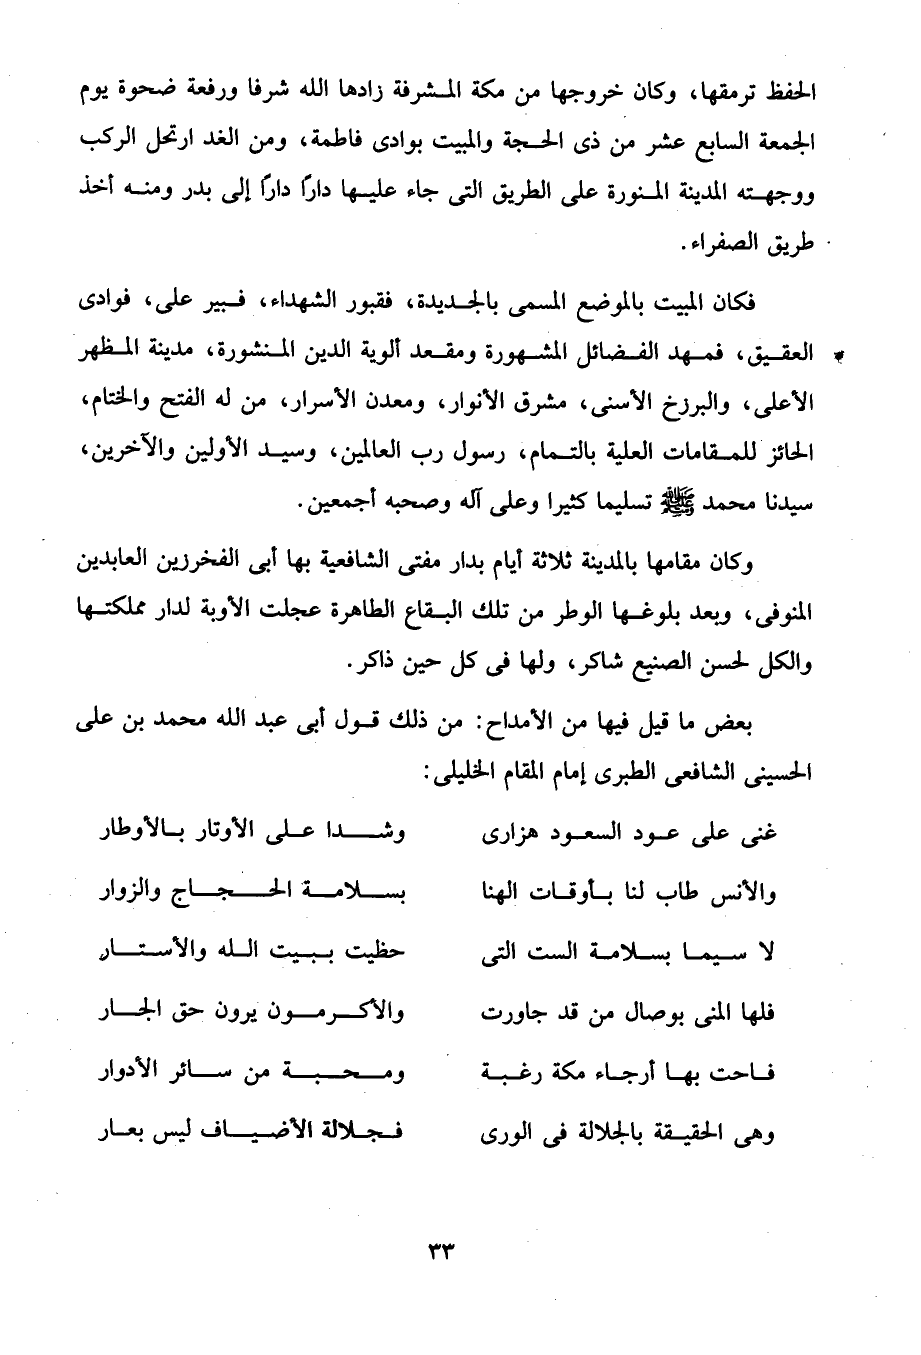 الحفظ ترمقها، وكان خروجها من مكة المشرفة زادها الله شرفا ورفعة ضحوة يوم
الجمعة السابع عشر من ذى الحجة والمبيت بوادى فاطمة، ومن الغد ارتحل الركب
ووجهته المدينة المنورة على الطريق التى جاء عليها دارًا دارًا إلى بدر ومنه أخذ
طريق الصفراء.
فكان المبيت بالموضع المسمى بالجديدة، فقبور الشهداء، فبير على، فوادى
العقيق، فمهد الفضائل المشهورة ومقعد ألوية الدين المنشورة، مدينة المظهر
الأعلى، والبرزخ الأسنى، مشرق الأنوار، ومعدن الأسرار، من له الفتح والختام،
الحائز للمقامات العلية بالتمام، رسول رب العالمين، وسيد الأولين والآخرين،
سيدنا محمد ﷺ تسليما كثيرا وعلى آله وصحبه أجمعين.
وكان مقامها بالمدينة ثلاثة أيام بدار مفتى الشافعية بها أبى الفخرزين العابدين
المنوفى، وبعد بلوغها الوطر من تلك البقاع الطاهرة عجلت الأوبة لدار مملكتها
والكل لحسن الصنيع شاكر، ولها فى كل حين ذاكر.
بعض ما قيل فيها من الأمداح: من ذلك قول أبى عبد الله محمد بن على
الحسينى الشافعى الطبرى إمام المقام الخليلى:
غنى على عود السعود هزارى وشدا على الأوتار بالأوطار
والأنس طاب لنا بأوقات الهنا بسلامة الحجاج والزوار
لا سيما بسلامة الست التى حظيت ببيت الله والأستار
فلها المنى بوصال من قد جاورت والأكرمون يرون حق الجار
فاحت بها أرجاء مكة رغبة ومحبة من سائر الأدوار
وهى الحقيقة بالجلالة فى الورى فجلالة الأضياف ليس بعار
٣٣